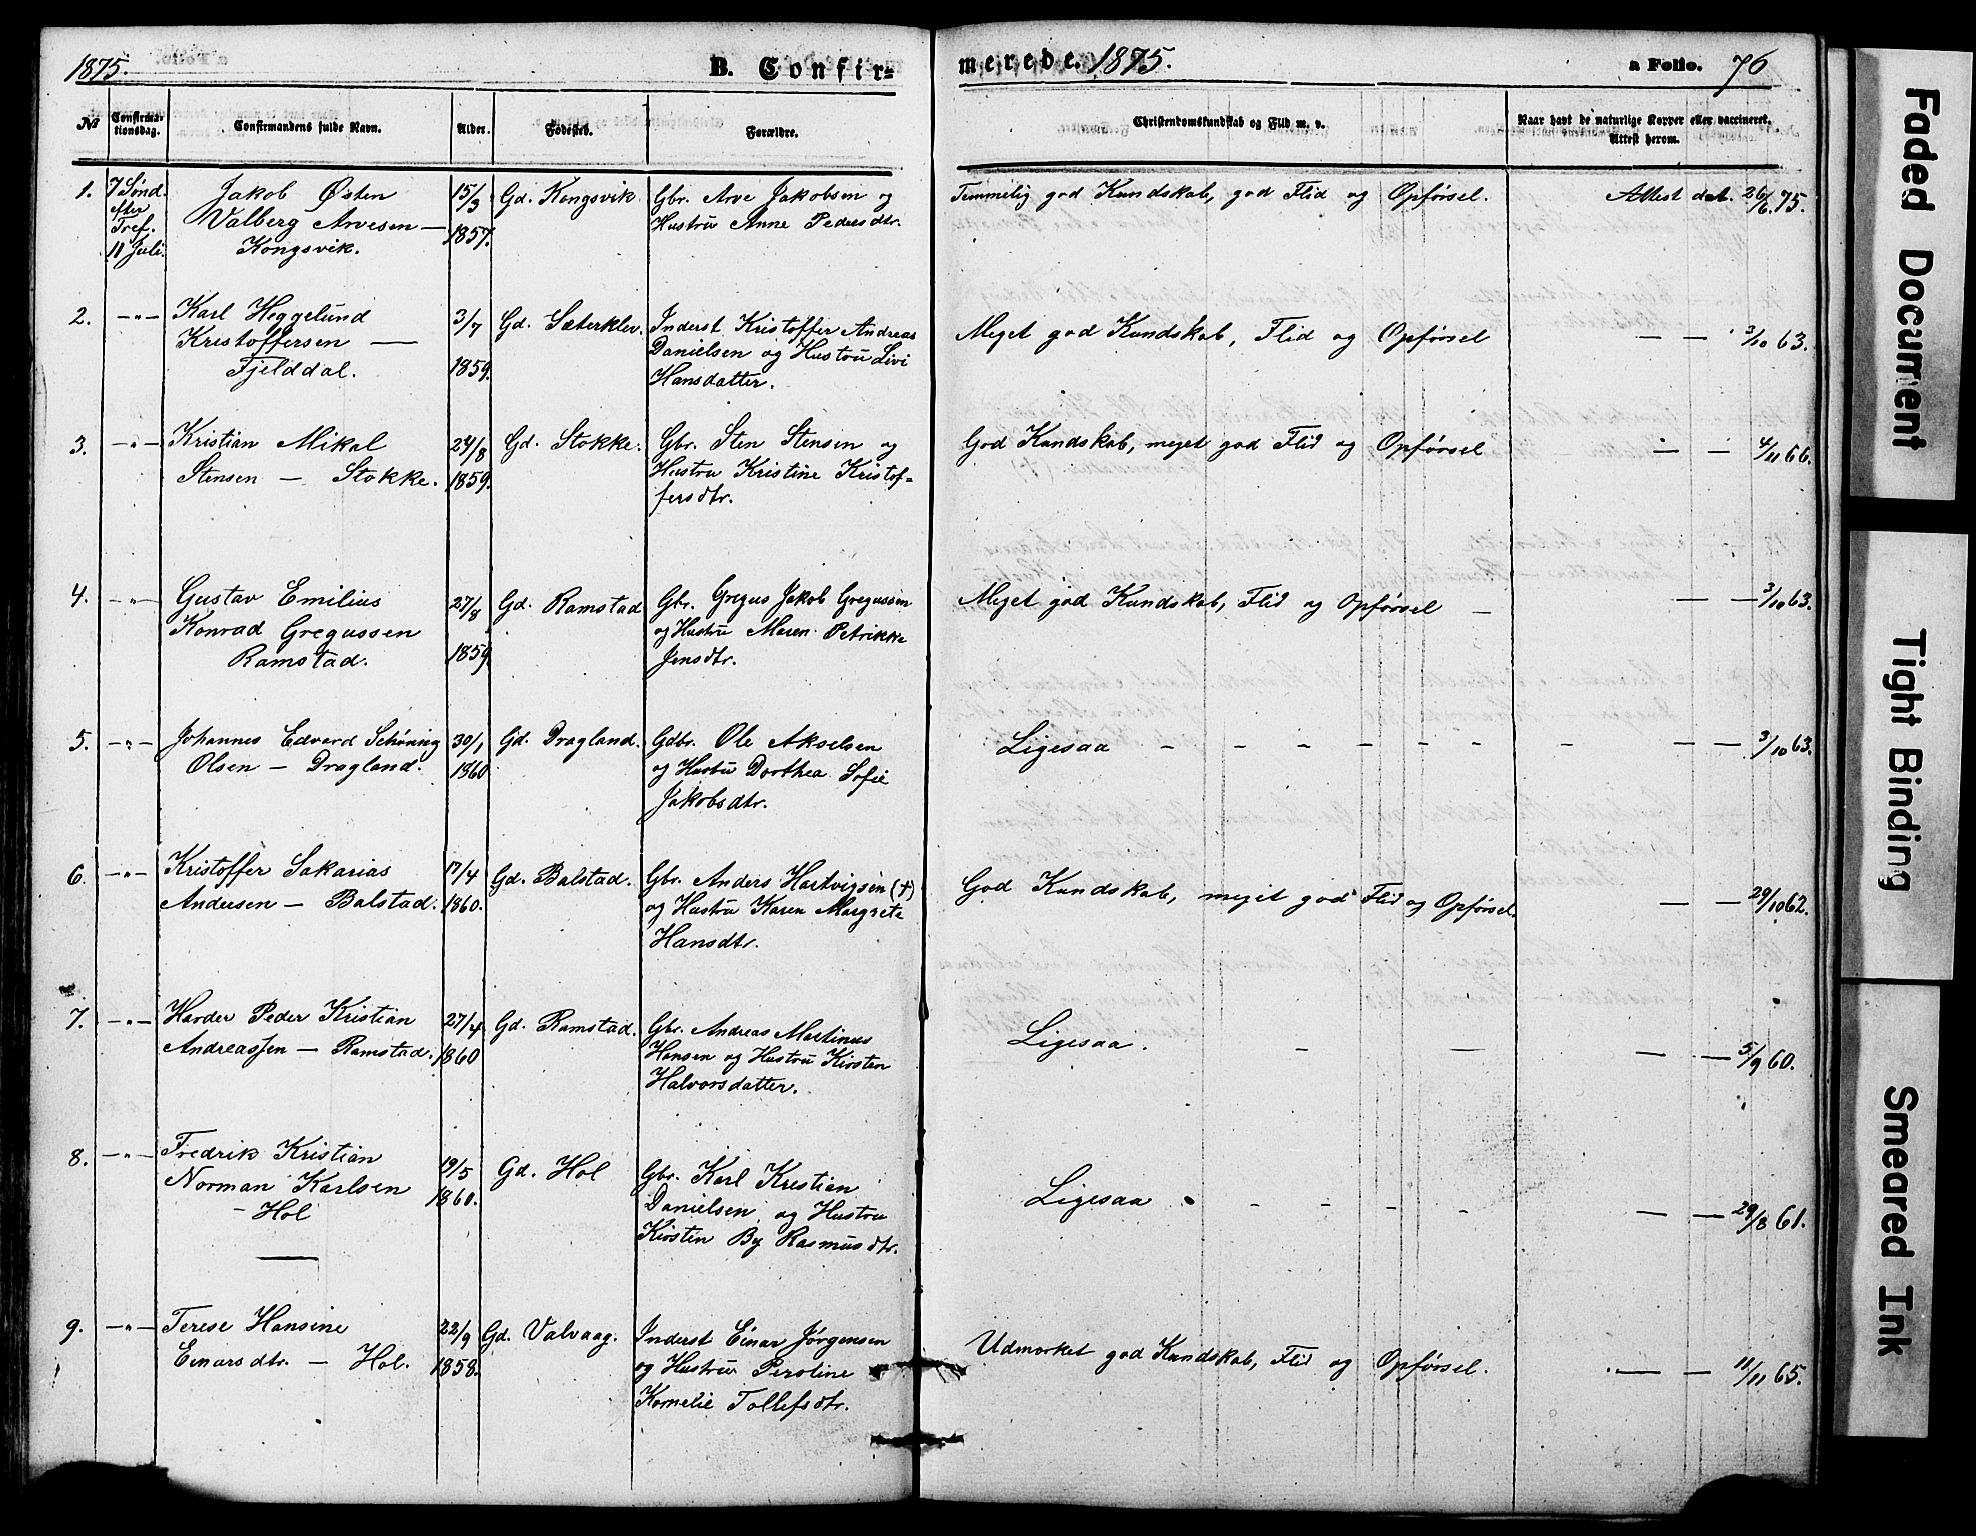 1875. B. Confir= merede. 1875. a Folio. 76
No Confirmationsdag. Confirmandens fulde Navn. Alder. Fødested. Forældre. Christendomskundskab og Flid m. v. Naar havt de naturlige Kopper eller vaccineret. Attest herom.
1. 7 Sønd. Jakob Østen 15/3 Gd. Kongsvik Gbr. Arve Jakobsen og Temmelig god Kundskab, god Flid og Opførsel. Attest dat. 26/6. 75.
efter Valberg Arvesen — 1857. Hustru Anne Pedersdtr.
Tref. Kongsvik.
11 Juli.
2. —"— Karl Heggelund 3/7 Gd. Sæterklev. Inderst Kristoffer Andreas Meget god Kundskab, Flid og Opførsel — — 3/10 63.
Kristoffersen — 1859. Danielsen og Hustru Livi
Fjelddal. Hansdatter.
3. —"— Kristian Mikal 24/8 Gd. Stokke. Gbr. Sten Stensen og God Kundskab, meget god Flid og Opførsel — — 4/11 66.
Stensen — Stokke. 1859. Hustru Kristine Kristof=
fersdtr.
4. —"— Gustav Emilius 27/8 Gd. Ramstad Gbr. Gregus Jakob Gregussen Meget god Kundskab, Flid og Opførsel — — — 3/10 63.
Konrad Gregussen 1859 og Hustru Maren Petrikke
Ramstad. Jensdtr.
5. —"— Johannes Edvard Schøning 30/1 Gd. Dragland. Gdbr. Ole Akselsen Ligesaa — — — — — — — — — 3/10 63.
Olsen — Dragland. 1860 og Hustru Dorthea Sofie
Jakobsdtr.
6. —"— Kristoffer Sakarias 17/4 Gd. Balstad. Gbr. Anders Hartvigsen (†) God Kundskab, meget god Flid og Opførsel. — — 29/10 62.
Andersen — Balstad. 1860. og Hustru Karen Margrete
Hansdtr.
7. —"— Harder Peder Kristian 27/4 Gd. Ramstad. Gbr. Andreas Martinus Ligesaa. — — — — 5/9 60.
Andreassen — Ramstad. 1860 Hansen og Hustru Kirsten
Halvorsdatter.
8. —"— Fredrik Kristian 19/5 Gd. Hol Gbr. Karl Kristian Ligesaa — — — — — — 29/8 61.
Norman Karlsen 1860. Danielsen og Hustru
— Hol Kirsten By Rasmusdtr.
9. —"— Terese Hansine 22/9 Gd. Valvaag. Inderst Einar Jørgensen Udmærket god Kundskab, Flid og Opførsel. — — 11/11 65.
Einarsdtr. — Hol. 1858. og Hustru Peroline
Kornelie Tollefsdtr.
Faded Document
Tight Binding
Smeared Ink